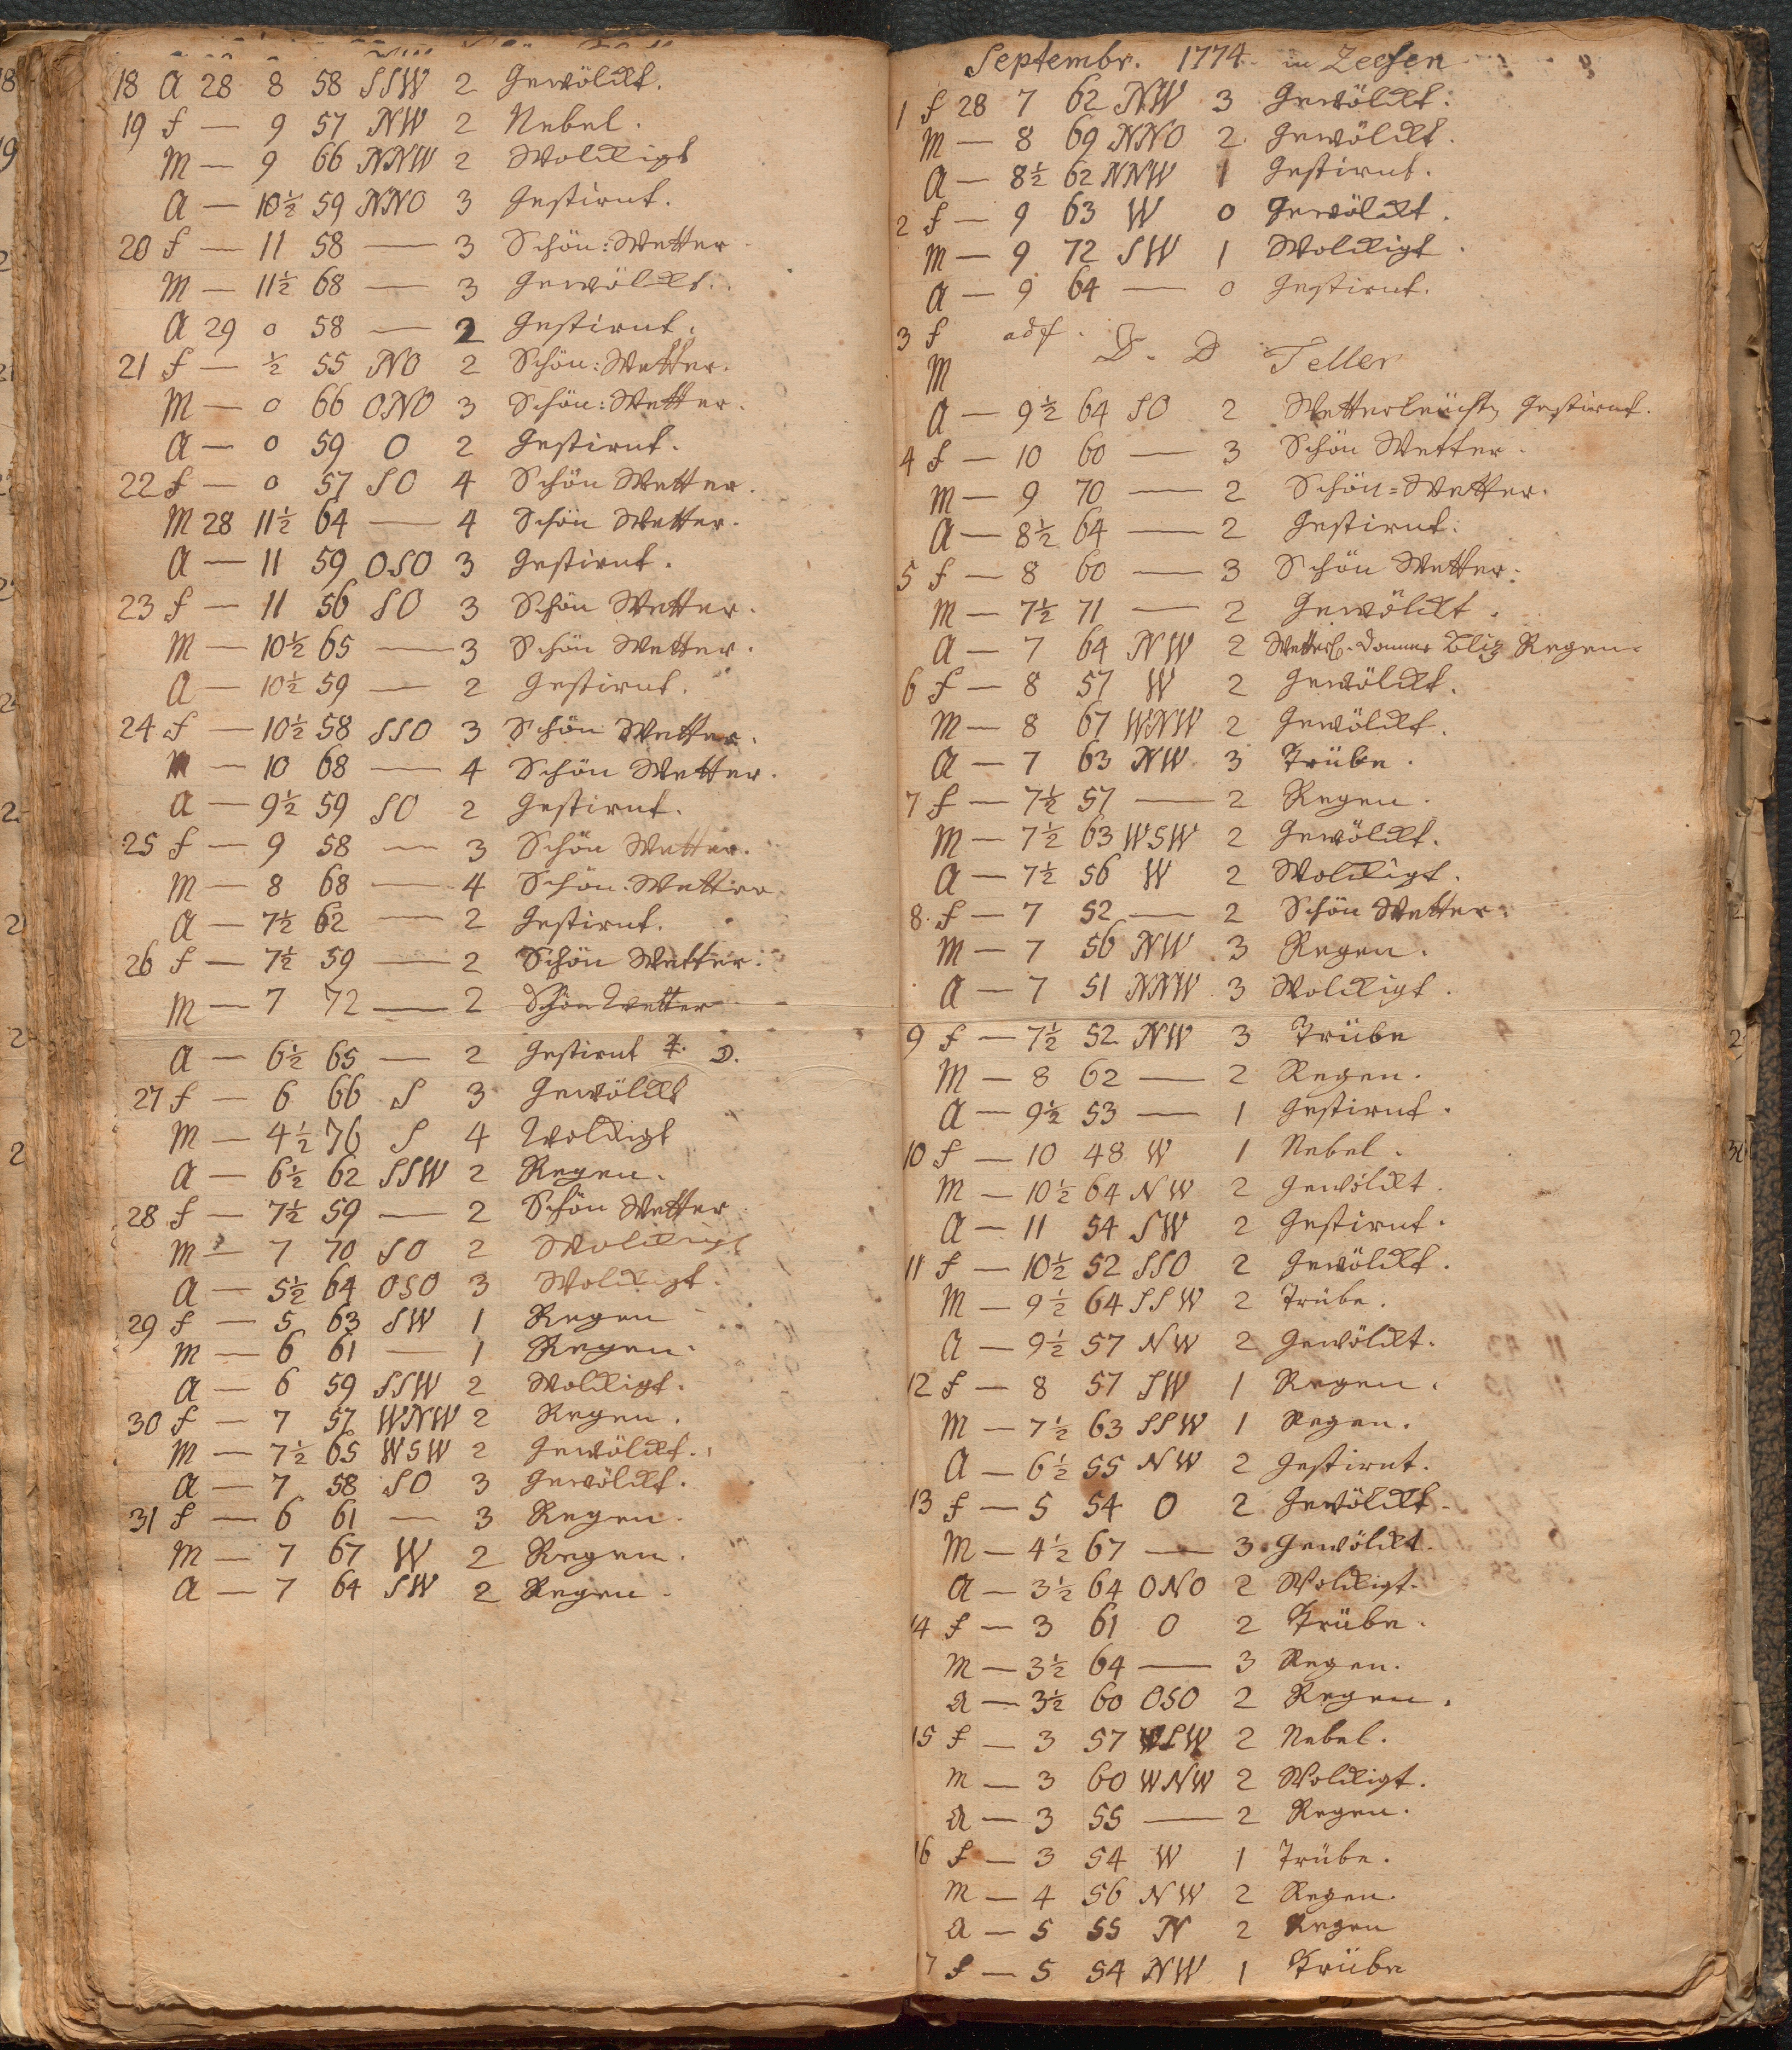 18 A 28 8 58 SSW 2 Gewölckt.
19 f — 9 57 NW 2 Nebel.
M — 9 66 NNW 2 Wolckigt
A — 10½ 59 NNO 3 Gestirnt.
20 f — 11 58 — 3 Schön: Wetter
M — 11½ 68 — 3 Gewölckt.
A 29 0 58 — 2 Gestirnt.
21 f — ½ 55 NO 2 Schön: Wetter.
M — 0 66 ONO 3 Schön: Wetter.
A — 0 59 O 2 Gestirnt.
22 f — 0 57 SO 4 Schön Wetter.
M 28 11½ 64 — 4 Schön Wetter.
A — 11 59 OSO 3 Gestirnt.
23 f — 11 56 SO 3 Schön Wetter.
M — 10½ 65 — 3 Schön Wetter.
A — 10½ 59 — 2 Gestirnt.
24 f — 10½ 58 SSO 3 Schön Wetter.
M — 10 68 — 4 Schön Wetter.
A — 9½ 59 SO 2 Gestirnt.
25 f — 9 58 — 3 Schön Wetter.
M — 8 68 — 4 Schön Wetter.
A — 7½ 62 — 2 Gestirnt.
26 f — 7½ 59 — 2 Schön Wetter.
M — 7 72 — 2 Schön Wetter
A — 6½ 65 — 2 Gestirnt
27 f — 6 66 S 3 Gewölckt
M — 4½ 76 S 4 Wolckigt
A — 6½ 62 SSW 2 Regen.
28 f — 7½ 59 — 2 Schön Wetter
M — 7 70 SO 2 Wolckigt
A — 5½ 64 OSO 3 Wolckigt.
29 f — 5 63 SW 1 Regen
M — 6 61 — 1 Regen.
A — 6 59 SSW 2 Wolckigt.
30 f — 7 57 WNW 2 Regen.
M — 7½ 65 WSW 2 Gewölckt.
A — 7 58 SO 3 Gewölckt.
31 f — 6 61 — 3 Regen.
M — 7 67 W 2 Regen.
A — 7 64 SW 2 Regen.
Septembr. 1774. in Zeesen
1 f 28 7 62 NW 3 Gewölckt.
M — 8 69 NNO 2 Gewölckt.
A — 8½ 62 NNW 1 Gestirnt.
2 f — 9 63 W 0 Gewölckt.
M — 9 72 SW 1 Wolckigt.
A — 9 64 — 0 Gestirnt.
3 f
M Teller
A — 9½ 64 SO 2 Gestirnt.
4 f — 10 60 — 3 Schön Wetter.
M — 9 70 — 2 Schön=Wetter.
A — 8½ 64 — 2 Gestirnt.
5 f — 8 60 — 3 Schön Wetter.
M — 7½ 71 — 2 Gewölckt.
A — 7 64 NW 2 Donner Bliz Regen.
6 f — 8 57 W 2 Gewölckt.
M — 8 67 WNW 2 Gewölckt.
A — 7 63 NW 3 Trübe.
7 f — 7½ 57 — 2 Regen.
M — 7½ 63 WSW 2 Gewölckt.
A — 7½ 56 W 2 Wolckigt.
8. f — 7 52 — 2 Schön Wetter.
M — 7 56 NW 3 Regen.
A — 7 51 NNW 3 Wolckigt.
9 f — 7½ 52 NW 3 Trübe
M — 8 62 — 2 Regen.
A — 9½ 53 — 1 Gestirnt.
10 f — 10 48 W 1 Nebel.
M — 10½ 64 NW 2 Gewölckt.
A — 11 54 SW 2 Gestirnt.
11 f — 10½ 52 SSO 2 Gewölckt.
M — 9½ 64 SSW 2 Trübe.
A — 9½ 57 NW 2 Gewölckt.
12 f — 8 57 SW 1 Regen.
M — 7½ 63 SSW 1 Regen.
A — 6½ 55 NW 2 Gestirnt.
13 f — 5 54 O 2 Gewölckt.
M — 4½ 67 — 3 Gewölckt.
A — 3½ 64 ONO 2 Wolckigt.
14 f — 3 61 O 2 Trübe.
M — 3½ 64 — 3 Regen.
A — 3½ 60 OSO 2 Regen.
15 f — 3 57 WSW 2 Nebel.
M — 3 60 WNW 2 Wolckigt.
A — 3 55 — 2 Regen.
16 f — 3 54 W 1 Trübe.
M — 4 56 NW 2 Regen.
A — 5 55 N 2 Regen
7 f — 5 54 NW 1 Trübe